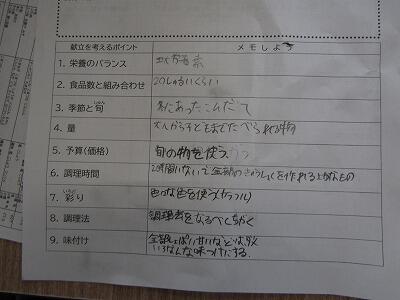 献立を考えるポイント メモしよう
1. 栄養のバランス 五大栄養素
2. 食品数と組み合わせ 20しゅるいくらい
3. 季節と旬 しゅん にあったこんだて
4. 量 大人から子どもまでたべられる物
5. 予算(価格) 旬の物を使う
6. 調理時間 2時間いないで全部のきゅうしょくを作れるようなもの
7. 彩り いろど 色々な色を使う(カラフル)
8. 調理法 調理者をなるべく
9. 味付け 全部しょっぱい甘いなどは
いろんな味つけにする.